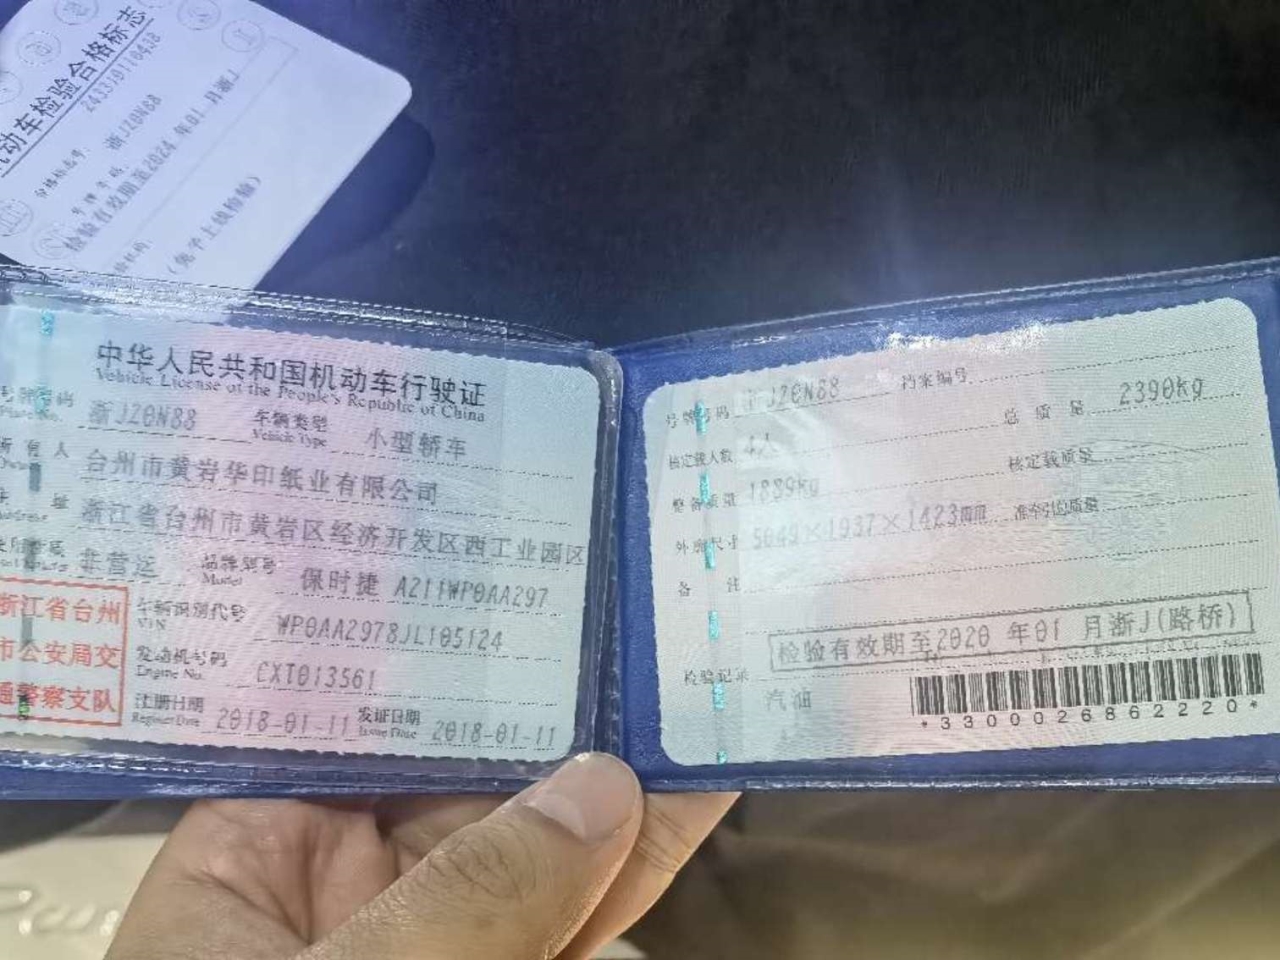 机动车检验合格标志
检验有效期至2024年01月浙J
(免予上线检验)
中华人民共和国机动车行驶证
Vehicle License of the People's Republic of China
号牌号码 浙JZ0N88 车辆类型 小型轿车
Plate No. Vehicle Type
所有人 台州市黄岩华印纸业有限公司
Owner
住址 浙江省台州市黄岩区经济开发区西工业园区
Address
使用性质 非营运 品牌型号 保时捷 A211WP0AA297
Model
浙江省台州
市公安局交
通警察支队
车辆识别代号 WP0AA2978JL105124
VIN
发动机号码 CXT013561
Engine No.
注册日期 2018-01-11 发证日期 2018-01-11
Register Date Issue Date
号牌号码 浙JZ0N88 档案编号
核定载人数 4人 总质量 2390kg
整备质量 1889kg 核定载质量
外廓尺寸 5049×1937×1423mm 准牵引总质量
备注
检验有效期至2020年01月浙J(路桥)
检验记录
汽油
*3300026862220*